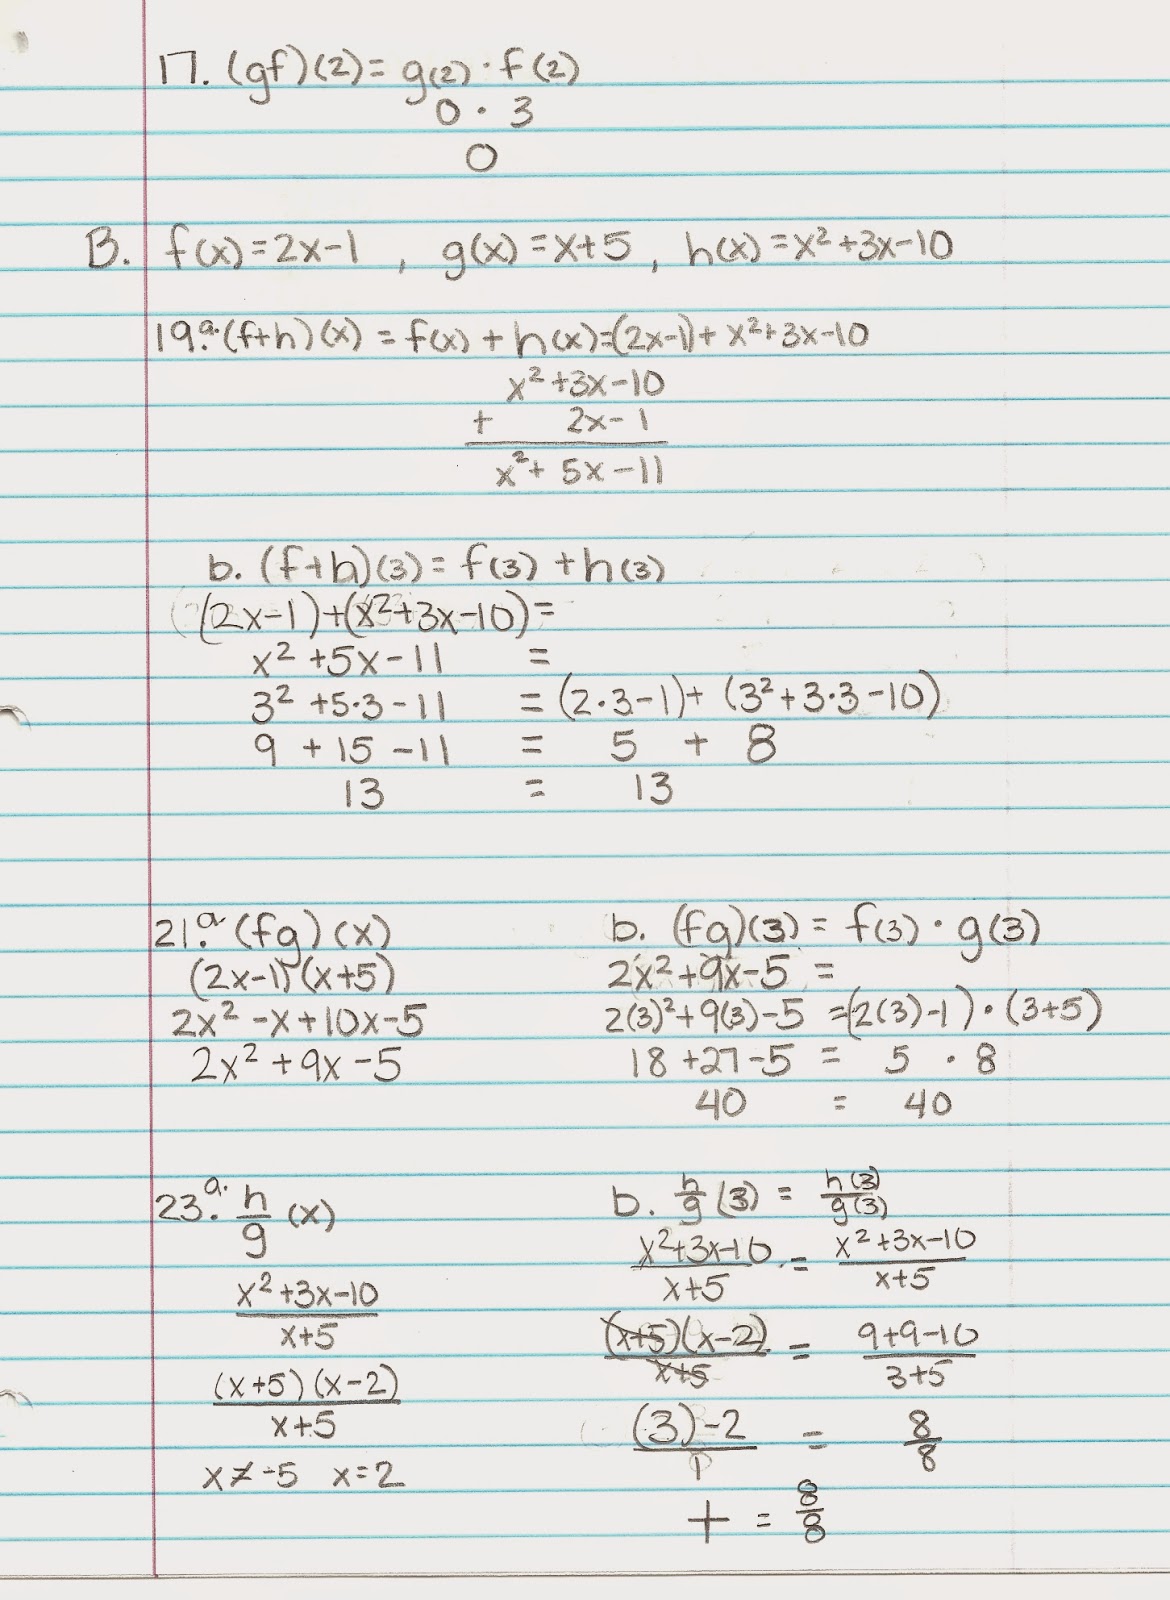 17. (gf)(2) = g(2) · f(2)
0 · 3
0
B. f(x)=2x-1 , g(x)=x+5 , h(x)=x²+3x-10
19.a. (f+h)(x) = f(x) + h(x)=(2x-1)+ x²+3x-10
x²+3x-10
+ 2x-1
x²+ 5x-11
b. (f+h)(3) = f(3) +h(3)
(2x-1)+(x²+3x-10)=
x² +5x-11 =
3² +5·3-11 = (2·3-1)+ (3²+3·3-10)
9 +15 -11 = 5 + 8
13 = 13
21.a. (fg)(x)
(2x-1)(x+5)
2x² -x+10x-5
2x² +9x-5
b. (fg)(3) = f(3) · g(3)
2x²+9x-5 =
2(3)²+9(3)-5 =(2(3)-1)·(3+5)
18+27-5 = 5 · 8
40 = 40
23.a. h/g (x)
x²+3x-10
x+5
(x+5)(x-2)
x+5
x≠-5 x=2
b. h/g (3) = h(3)/g(3)
x²+3x-10 = x²+3x-10
x+5 x+5
(x+5)(x-2) = 9+9-10
x+5 3+5
(3)-2 = 8/8
1
= 8/8